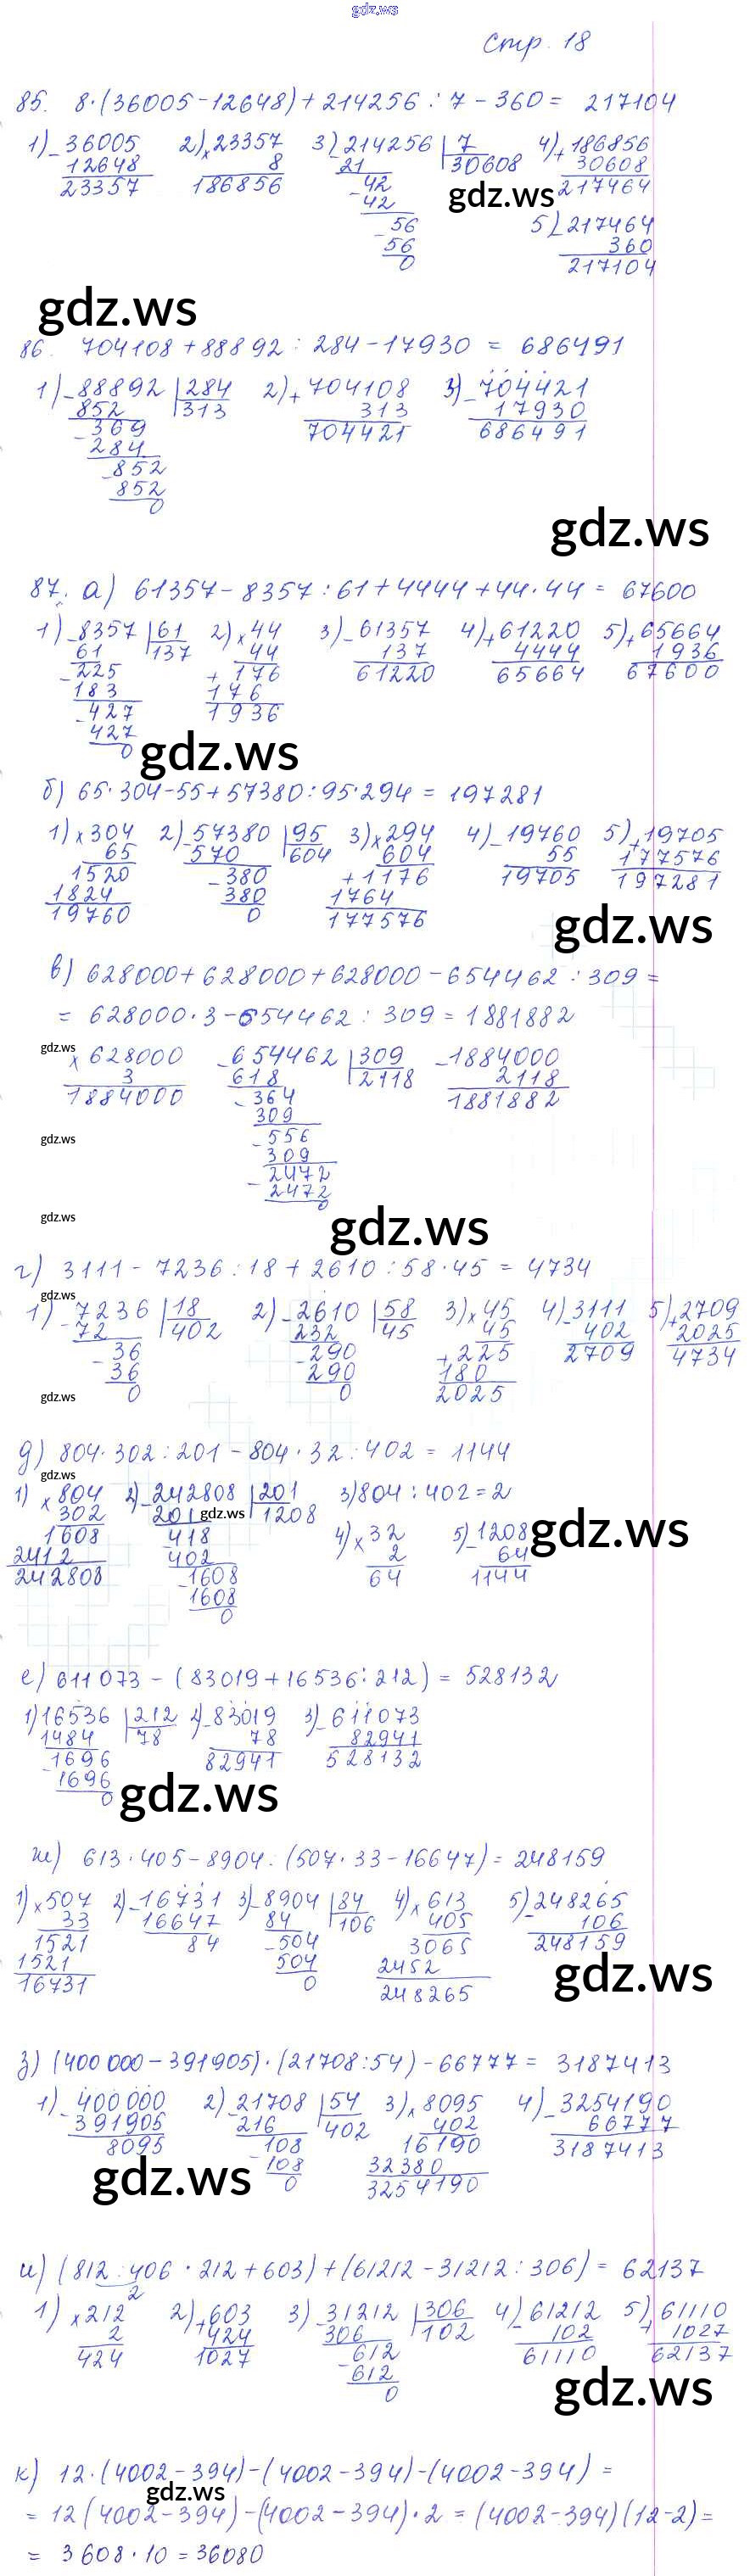 gdz.ws
Стр. 18
85. 8·(36005-12648)+214256:7-360= 217104
1) 36005 2) 23357 3) 214256 7 4) 186856
- 12648 × 8 - 21 30608 + 30608
23357 186856 42 217464
gdz.ws
- 42 5) 217464
56 - 360
- 56 217104
0
gdz.ws
86. 704108+88892:284-17930 = 686491
1) 88892 284 2) 704108 3) 704421
- 852 313 + 313 - 17930
369 704421 686491
- 284
852
- 852
0
gdz.ws
87. а) 61357-8357:61+4444+44·44= 67600
1) 8357 61 2) 44 3) 61357 4) 61220 5) 65664
- 61 137 × 44 - 137 + 4444 + 1936
225 + 176 61220 65664 67600
- 183 176
427 1936
- 427
0
gdz.ws
б) 65·304-55+57380:95·294 = 197281
1) 304 2) 57380 95 3) 294 4) 19760 5) 19705
× 65 - 570 604 × 604 - 55 + 177576
1520 380 + 1176 19705 197281
1824 - 380 1764
19760 0 177576
gdz.ws
в) 628000+628000+628000-654462:309=
= 628000·3-654462:309=1881882
gdz.ws
× 628000 - 654462 309 - 1884000
3 618 2118 2118
1884000 364 1881882
- 309
gdz.ws
556
- 309
2472
- 2472
0
gdz.ws
gdz.ws
г) 3111-7236:18+2610:58·45 = 4734
gdz.ws
1) 7236 18 2) 2610 58 3) 45 4) 3111 5) 2709
- 72 402 - 232 45 × 45 - 402 + 2025
36 290 + 225 2709 4734
- 36 - 290 180
0 0 2025
gdz.ws
д) 804·302:201-804·32:402 = 1144
gdz.ws
1) 804 2) 242808 201 3) 804:402=2
× 302 - 201 1208
gdz.ws
1608 418 4) 32 5) 1208
gdz.ws
2412 402 × 2 - 64
242808 - 1608 64 1144
1608
0
е) 611073-(83019+16536:212) = 528132
1) 16536 212 2) 83019 3) 611073
1484 78 - 78 - 82941
1696 82941 528132
- 1696
0
gdz.ws
ж) 613·405-8904:(507·33-16647)=248159
1) 507 2) 16731 3) 8904 84 4) 613 5) 248265
× 33 - 16647 - 84 106 × 405 - 106
1521 84 504 3065 248159
1521 - 504 2452
16731 0 248265
gdz.ws
з) (400000-391905)·(21708:54)-66777= 3187413
1) 400000 2) 21708 54 3) 8095 4) 3254190
- 391905 - 216 402 × 402 - 66777
8095 108 16190 3187413
- 108 32380
0 3254190
gdz.ws
и) (812:406·212+603)+(61212-31212:306)= 62137
2
1) 212 2) 603 3) 31212 306 4) 61212 5) 61110
× 2 + 424 - 306 102 - 102 + 1027
424 1027 612 61110 62137
- 612
0
gdz.ws
к) 12·(4002-394)-(4002-394)-(4002-394)=
gdz.ws
= 12(4002-394)-(4002-394)·2=(4002-394)(12-2)=
= 3608·10=36080